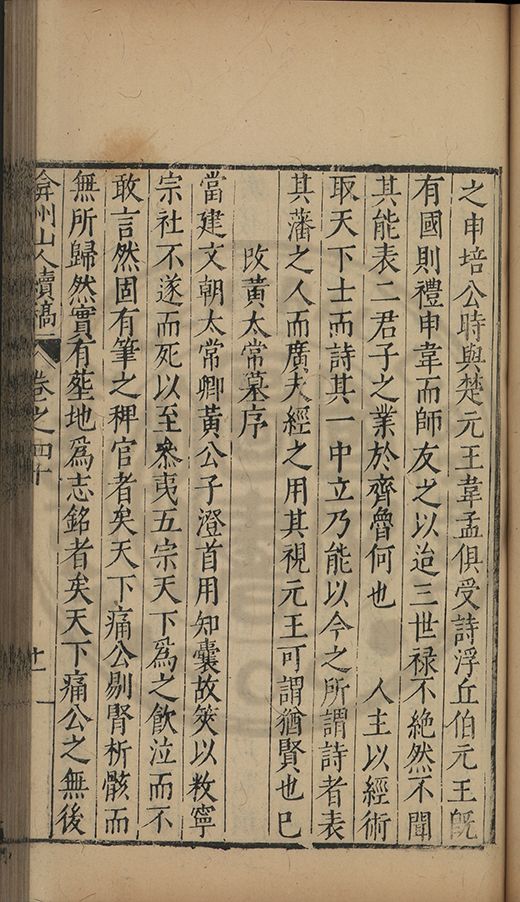 之申培公時與楚元王韋孟俱受詩浮丘伯元王旣
有國則禮申韋而師友之以迨三世禄不絶然不聞
其能表二君子之業於齊魯何也　人主以經術
取天下士而詩其一中立乃能以今之所謂詩者表
其藩之人而廣夫經之用其視元王可謂猶賢也巳
攺黃太常墓序
當建文朝太常卿黃公子澄首用知囊故筴以敉寧
宗社不遂而死以至叅夷五宗天下爲之飲泣而不
敢言然固有筆之稗官者矣天下痛公剔腎析骸而
無所歸然實有塟地爲志銘者矣天下痛公之無後
弇州山人續稿
卷之四十
十一